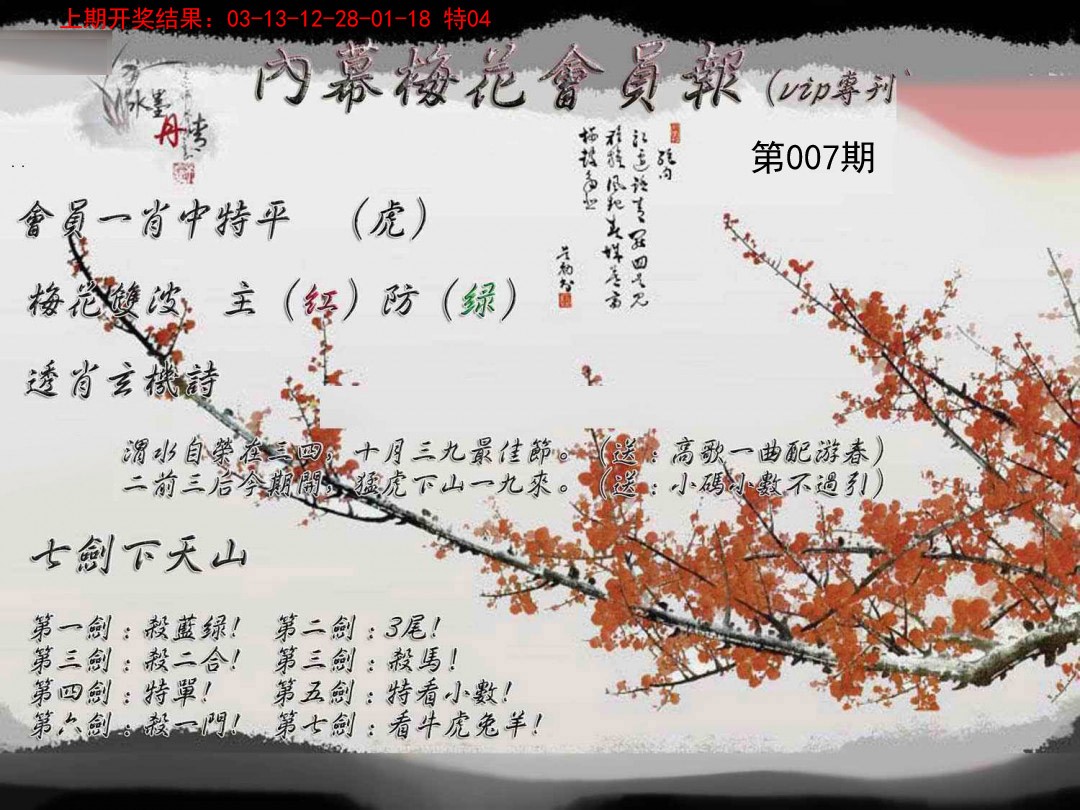 上期开奖结果：03-13-12-28-01-18 特04
內幕梅花會員報（vip專刊
水墨
丹青
第007期
會員一肖中特平 （虎）
梅花雙波 主（红）防（绿）
透肖玄機詩
渭水自榮在三四，十月三九最佳節。（送：高歌一曲配游春）
二前三后今期開，猛虎下山一九來。（送：小碼小數不過引）
七劍下天山
第一劍：殺藍绿！ 第二劍：3尾！
第三劍：殺二合！ 第三劍：殺馬！
第四劍：特單！ 第五劍：特看小數！
第六劍：殺一門！ 第七劍：看牛虎兔羊！